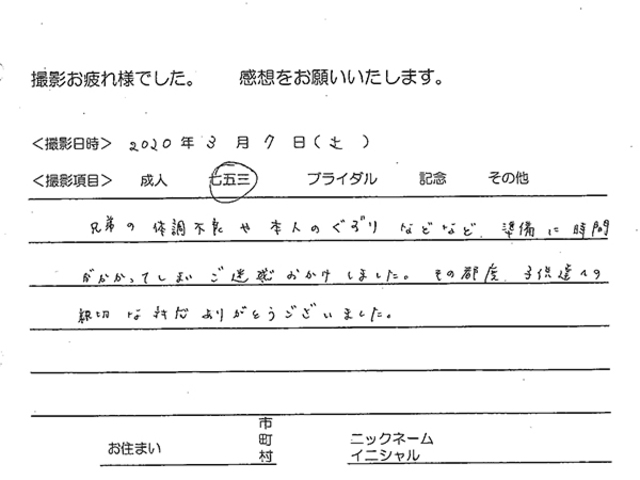 撮影お疲れ様でした。 感想をお願いいたします。
＜撮影日時＞ 2020年3月7日(土)
＜撮影項目＞ 成人 七五三 ブライダル 記念 その他
兄弟の体調不良や本人のぐずりなどなど、準備に時間
がかかってしまいご迷惑おかけしました。その都度、子供達への
親切な対応ありがとうございました。
お住まい 市 町 村 ニックネーム イニシャル